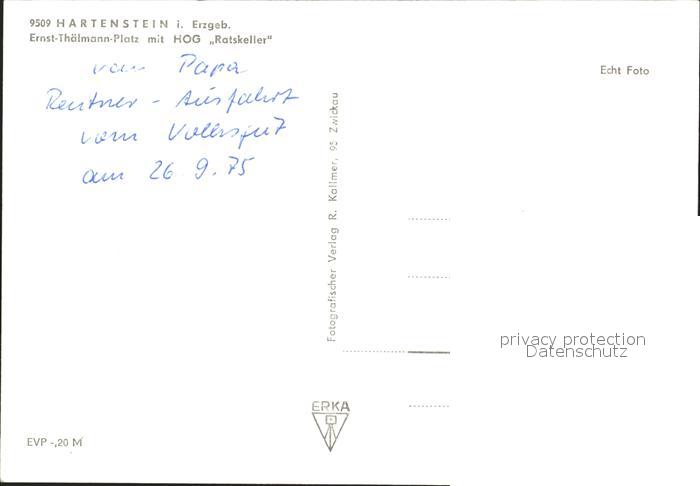 9509 HARTENSTEIN i. Erzgeb.
Ernst-Thälmann-Platz mit HOG „Ratskeller"
vom Papa
Rentner - Ausfahrt
vom Volksgut
am 26.9.75
Echt Foto
Fotografischer Verlag R. Kallmer, 95 Zwickau
privacy protection
Datenschutz
ERKA
EVP -,20 M